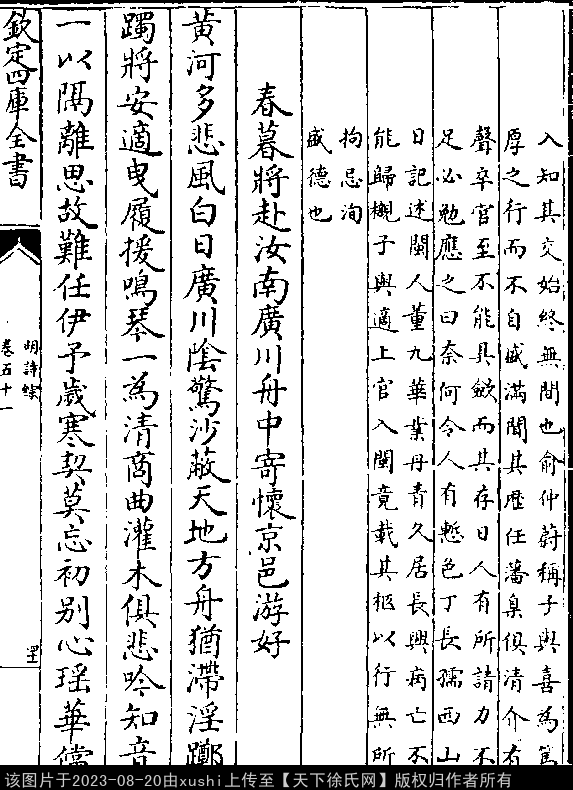 入知其交始終無間也俞仲蔚稱子與喜為篤
厚之行而不自盛滿聞其歷任藩臬俱清介有
聲卒官至不能具斂而其存日人有所請力不
足必勉應之曰奈何令人有慙色丁長孺西山
日記述閩人董九華業丹青久居長興病亡不
能歸櫬子與適上官入閩竟載其柩以行無所
拘忌洵
盛德也
春暮將赴汝南廣川舟中寄懷京邑游好
黄河多悲風白日廣川陰驚沙蔽天地方舟猶滯淫躑
躅將安適曳履援鳴琴一為清商曲灌木俱悲吟知音
一以隔離思故難任伊予歲寒契莫忘初别心瑶華儻
欽定四庫全書
明詩綜
卷五十一
该图片于2023-08-20由xushi上传至【天下徐氏网】版权归作者所有